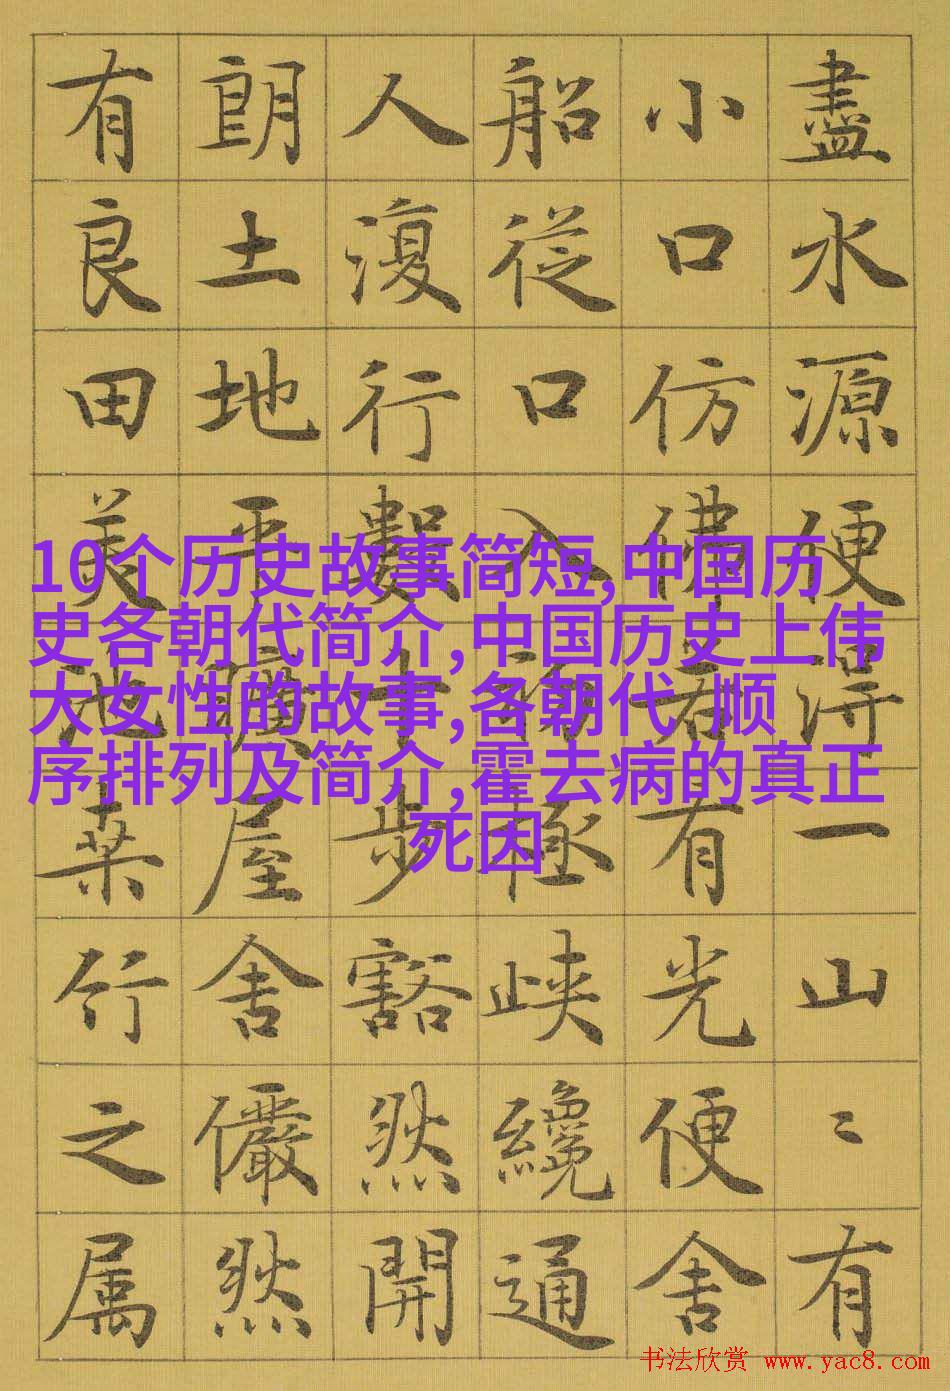 盡水源便得一山〻有
小口仿佛若有光便舍
船從口入初極峽纔通
人復行數十步豁然開
朗土地平曠屋舍儼然
有良田美池桑竹之属
10个历史故事简短,中国历
史各朝代简介,中国历史上伟
大女性的故事,各朝代 顺
序排列及简介,霍去病的真正
死因
书法欣赏 www.yac8.com